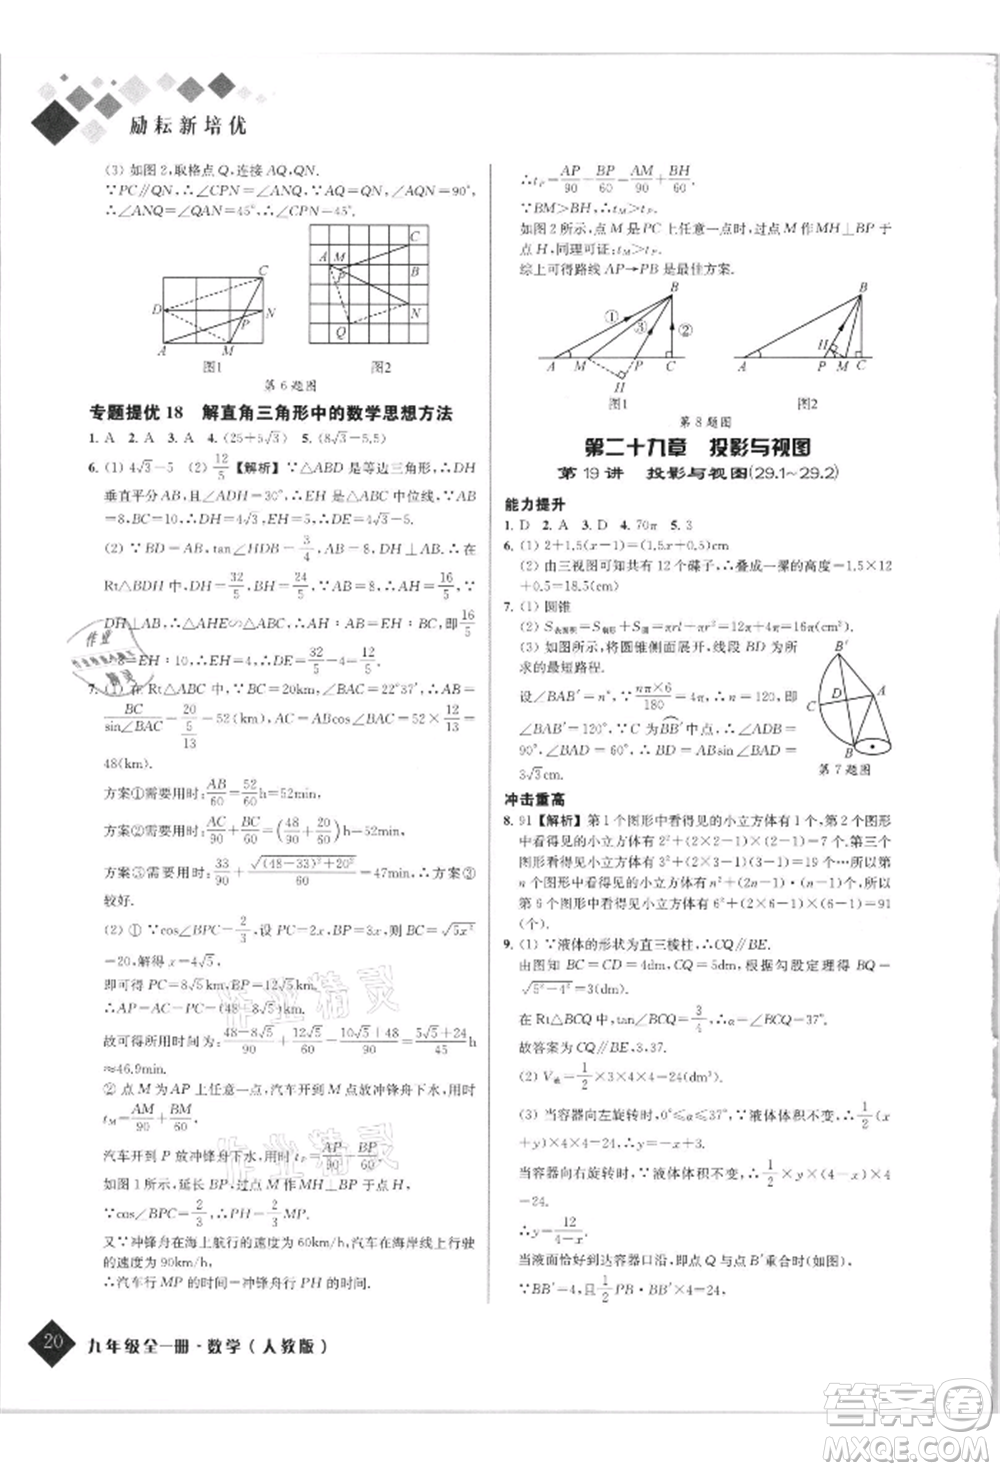 励耘新培优
(3) 如图2,取格点Q,连接AQ,QN.
∵PC∥QN,∴∠CPN=∠ANQ,∵AQ=QN,∠AQN=90°,
∴∠ANQ=∠QAN=45°,∴∠CPN=45°.
图1
图2
第6题图
专题提优18 解直角三角形中的数学思想方法
1. A 2. A 3. A 4. (25+5√3) 5. (8√3-5.5)
6. (1) 4√3-5 (2) 12/5 【解析】∵△ABD是等边三角形,EH
垂直平分AB,∴∠ADH=30°,∴EH是△ABC的中位线,∵AB
=8,BC=10,∴DH=4√3,EH=5,∴DE=4√3-5.
(2) ∵BD=AB,tan∠HDB=3/4,∴DE垂直平分AB.∴在
Rt△BDH中,DH=32/5,BH=24/5,∵AB=8,∴AH=16/5,∵
DH⊥AB,∴△AHE∽△ABC,∴AH∶AB=EH∶BC,即16/5
∶8=EH∶10,∴EH=4,∴DE=DH-EH=32/5-4=12/5.
7. (1) 在Rt△ABC中,∵BC=20km,∠BAC=22°37′,∴AB=
BC/sin∠BAC=20/(5/13)=52(km),AC=ABcos∠BAC=52×12/13=
48(km).
方案①需要用时:AB/60=52/60h=52min,
方案②需要用时:AC/90+BC/60=(48/90+20/60)h=52min,
方案③需要用时:33/90+√((48-33)²+20²)/60=47min,∴方案③
较好.
(2) ① ∵cos∠BPC=2/3,设PC=2x,则PB=3x,BC=√(5x²)
=20,解得x=4√5,
即可得PC=8√5,BP=12√5.
∴AP=AC-PC=(48-8√5)km.
故可得所用时间为:(48-8√5)/90+12√5/60=(10√5+48)/90=(5√5+24)/45h
≈46.9min.
② 点M为AP上任意一点,汽车开到M点放冲锋舟下水,用时
tM=AM/90+BM/60.
汽车开到P放冲锋舟下水,用时tP=AP/90+BP/60.
如图1,延长BP,过点M作MH⊥BP于点H.
∵cos∠BPC=2/3,∴PH=2/3MP.
又∵冲锋舟在海上航行的速度为60km/h,汽车在海岸线上的
速度为90km/h,
∴汽车行MP的时间=冲锋舟行PH的时间.
∴tP=AP/90+BP/60=AM/90+BH/60.
∵BM>BH,∴tM>tP.
如图2所示,点M是PC上任意一点时,过点M作MH⊥BP于
点H,同理可证:tM>tP.
综上可得路线AP→PB是最佳方案.
图1
图2
第8题图
第二十九章 投影与视图
第19讲 投影与视图(29.1~29.2)
能力提升
1. D 2. A 3. D 4. 70π 5. 3
6. (1) 2+1.5(x-1)=(1.5x+0.5)cm
(2) 由三视图可知共有12个碟子,∴叠成一摞的高度=1.5×12
+0.5=18.5(cm)
7. (1) 圆锥
(2) S表面积=S扇形+S圆=πrl+πr²=12π+4π=16π(cm²)
(3) 如图所示,将圆锥侧面展开,线段BD为所
求的最短路程.
设∠BAB′=n°,∵nπ×6/180=4π,∴n=120,即
∠BAB′=120°,∵C为BB′中点,∴∠ADB=
90°,∠BAD=60°,∴BD=AB·sin∠BAD=6×√3/2=
3√3cm.
第7题图
冲击重高
8. 91【解析】第1个图形中看得见的小立方体有1个,第2个图形
中看得见的小立方体有2²+(2×2-1)×(2-1)=7个,第三个
图形看得见的小立方体有3²+(2×3-1)×(3-1)=19个…所以第
n个图形看得见的小立方体有n²+(2n-1)·(n-1)个,所以
第6个图形中看得见的小立方体有6²+(2×6-1)×(6-1)=91
(个).
9. (1) ∵液体的形状为直三棱柱,∴CQ∥BE.
由图知BC=CD=4dm,根据勾股定理得BQ=
√(5²-4²)=3(dm).
在Rt△BCQ中,tan∠BCQ=3/4,∴α=∠BCQ=37°.
故答案为CQ∥BE,3,37.
(2) V液=1/2×3×4×4=24(dm³).
(3) 当容器向左旋转时,0°≤α≤37°,∵液体体积不变,∴1/2(x
+y)×4×4=24,∴y=-x+3;
当容器向右旋转时,∵液体体积不变,∴1/2×y×(4-x)×4
=24.
∴y=12/(4-x).
当液面恰好到达容器口沿,即点Q与点B′重合时(如图),
∵BB′=4,且1/2PB·BB′×4=24,
20
九年级全一册·数学(人教版)
作业精灵
作业精灵
答案圈
MXQE.COM